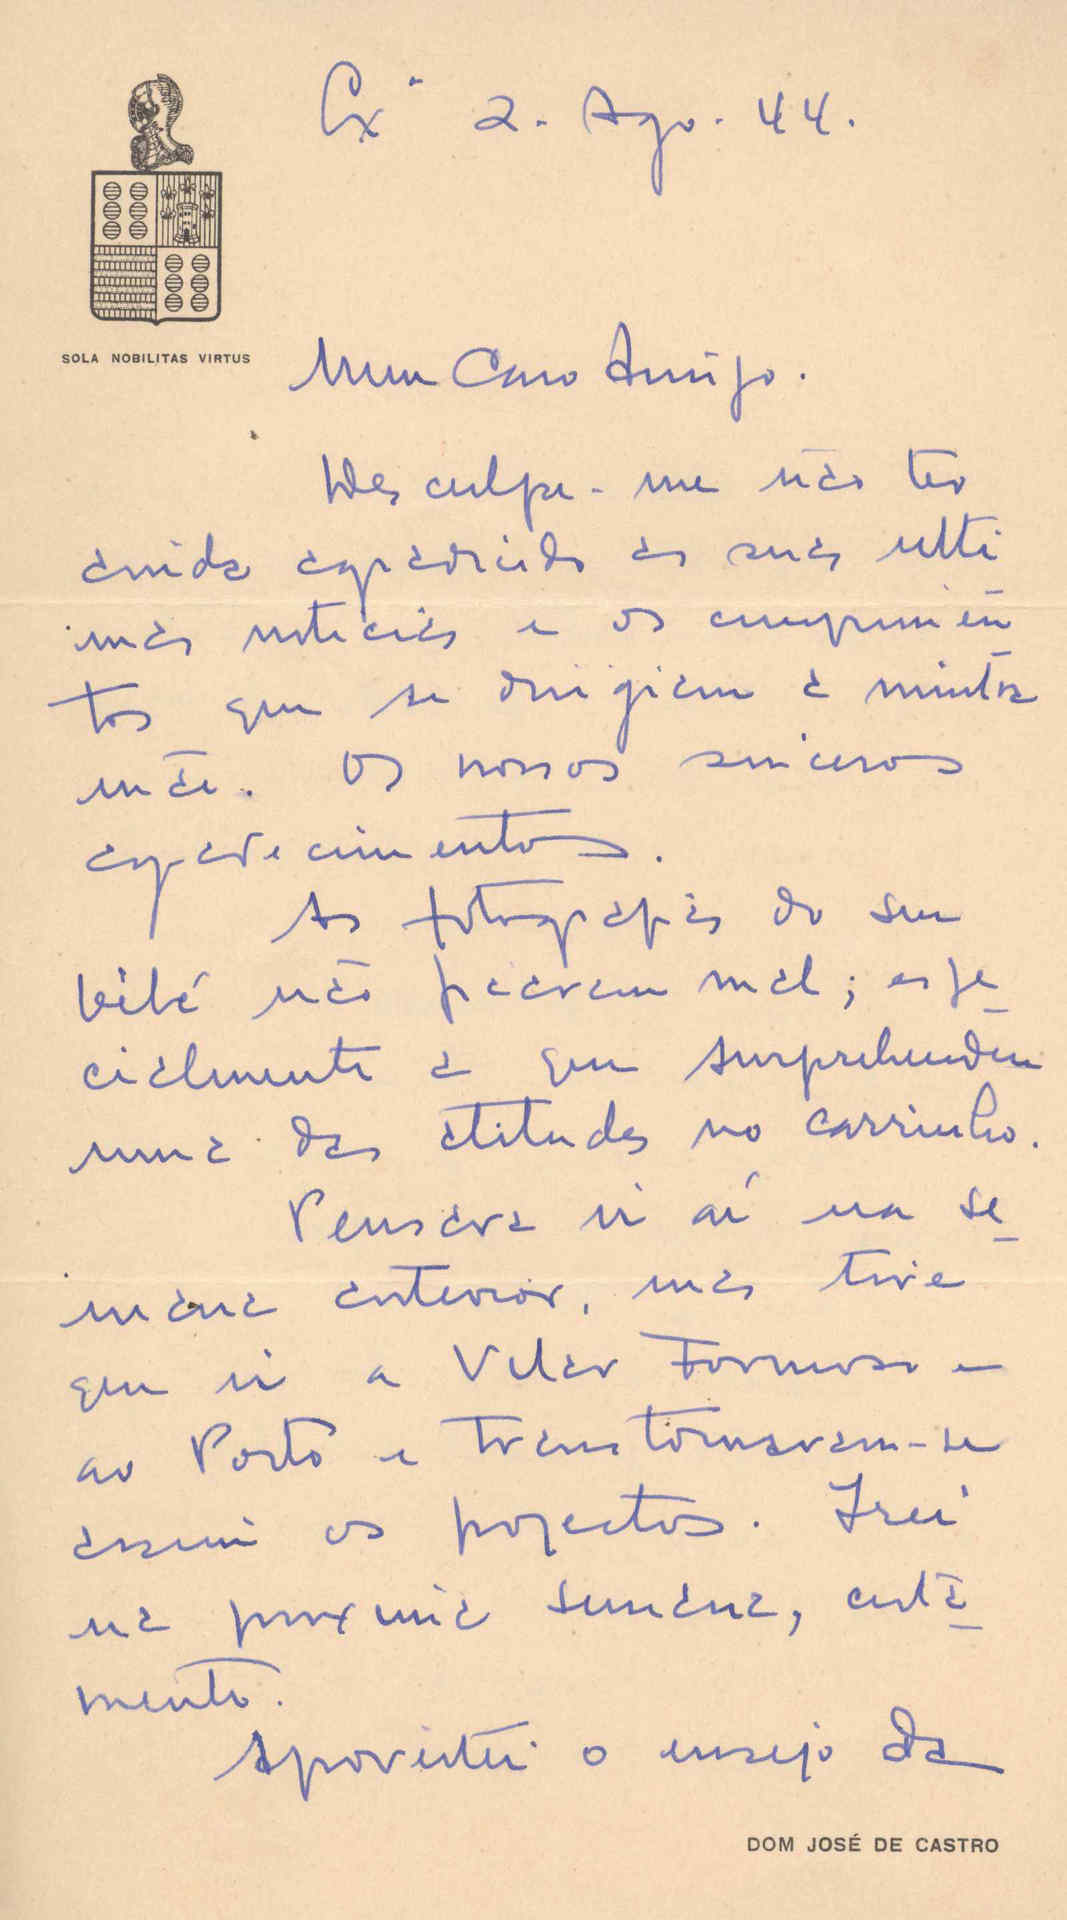 Cxª 2. Ago. 44.
SOLA NOBILITAS VIRTUS
Meu Caro Amigo.
Desculpe-me não ter
ainda agradecido as suas ulti
mas noticias e os cumprimen
tos que se dirigiam a minha
mãe. Os nossos sinceros
agradecimentos.
As fotografias do seu
bébé não ficaram mal; espe
cialmente a que surprehendeu
uma das atitudes no carrinho.
Pensava ir aí na se
mana anterior, mas tive
que ir a Vilar Formoso e
ao Porto e transtornaram-se
assim os projectos. Irei
na proxima semana, certa
mente.
Aproveitei o ensejo da
DOM JOSÉ DE CASTRO